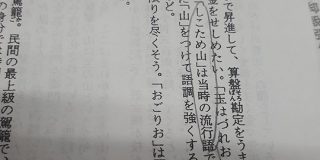 で昇進して、算盤勘定をうま
金をせしめたい。「玉はづれお
しこため山」は当時の流行語で
「山」をつけて語調を強くする
ど。
りを尽くそう。「おごりお」は
駕籠。民間の最上級の駕籠で、